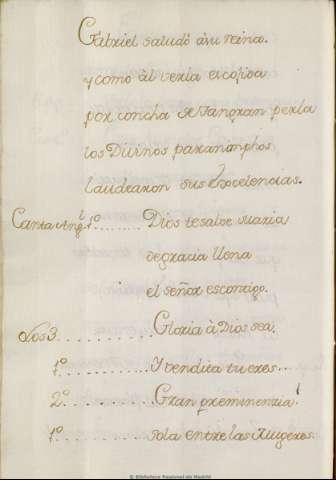 Gabriel saludó à su reina.
y como àl verla escojida
por concha de tan gran perla
los Divinos paraninphos
laudaron sus Excelencias.
Canta Ang.l 1º ........ Dios te salve maria
de gracia llena
el señor es contigo.
Los 3. .......... Gloria à Dios sea.
1º .......... Y vendita tu eres...
2º .......... Gran preminenzia!
1º .......... sola entre las Mugeres.
© Biblioteca Regional de Madrid